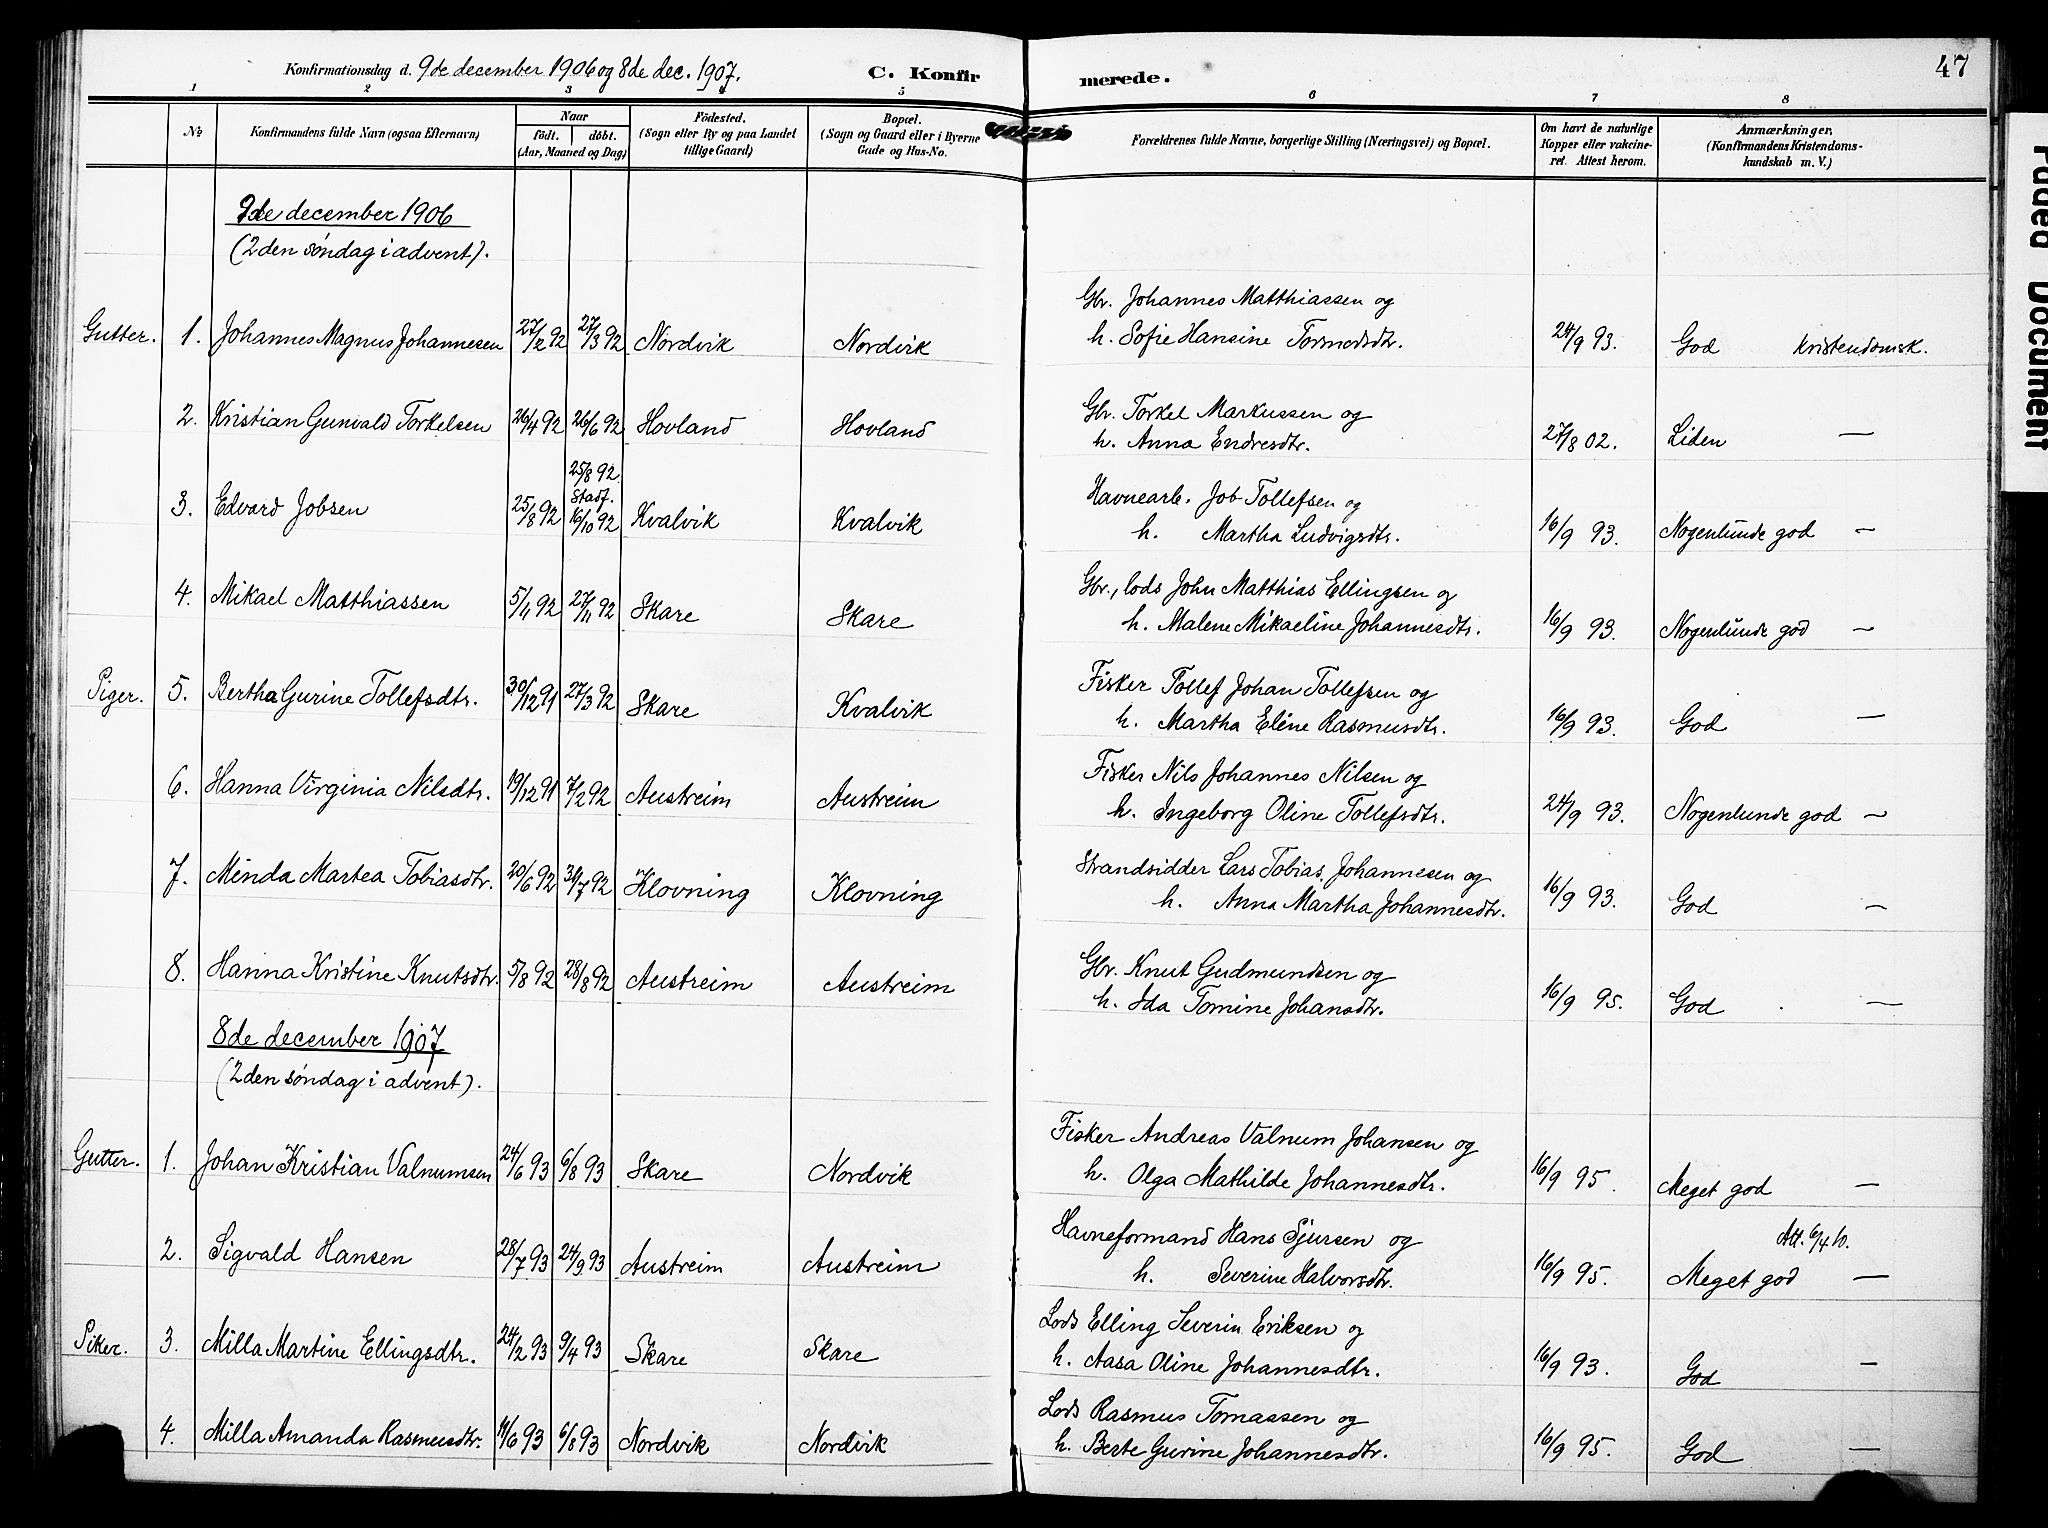 Konfirmationsdag d. 9de december 1906 og 8de dec. 1907. C. Konfirmerede. 47
1 2 3 4 5 6 7 8
No
Konfirmandens fulde Navn (ogsaa Efternavn)
Naar
födt. döbt.
(Aar, Maaned og Dag)
Födested.
(Sogn eller By og paa Landet
tillige Gaard)
Bopæl.
(Sogn og Gaard eller i Byerne
Gade og Hus-No.
Forældrenes fulde Navne, borgerlige Stilling (Næringsvei) og Bopæl.
Om havt de naturlige
Kopper eller vakcine-
ret. Attest herom.
Anmærkninger,
(Konfirmandens Kristendoms-
kundskab m. V.)
9de december 1906
(2den søndag i advent).
Gbr. Johannes Matthiassen og
Gutter. 1. Johannes Magnus Johannesen 27/2 92 27/3 92 Nordvik Nordvik h. Sofie Hansine Tormodsdtr. 24/9 93. God Kristendomsk.
Gbr. Torkel Markussen og
2. Kristian Gunvald Torkelsen 26/4 92 26/6 92 Hovland Hovland h. Anna Endresdtr. 27/8 02. Liden —
25/8 92.
Stadf.
Havnearb. Job Tollefsen og
3. Edvard Jobsen 25/8 92 16/10 92 Kvalvik Kvalvik h. Martha Ludvigsdtr. 16/9 93. Nogenlunde god —
Gbr., lods John Matthias Ellingsen og
4. Mikael Matthiassen 5/11 92 27/11 92 Skare Skare h. Malene Mikaeline Johannesdtr. 16/9 93. Nogenlunde god —
Fisker Tollef Johan Tollefsen og
Piger. 5. Bertha Gurine Tollefsdtr. 30/12 91 27/3 92 Skare Kvalvik h. Martha Eléne Rasmusdtr. 16/9 93. God —
Fisker Nils Johannes Nilsen og
6. Hanna Virginia Nilsdtr. 19/12 91 7/2 92 Austreim Austreim h. Ingeborg Oline Tollefsdtr. 24/9 93. Nogenlunde god —
Strandsidder Lars Tobias Johannesen og
7. Minda Martea Tobiasdtr. 20/6 92 31/7 92 Klovning Klovning h. Anna Martha Johannesdtr. 16/9 93. God —
Gbr. Knut Gudmundsen og
8. Hanna Kristine Knutsdtr. 5/8 92 28/8 92 Austreim Austreim h. Ida Tomine Johansdtr. 16/9 95. God —
8de december 1907
(2den søndag i advent).
Fisker Andreas Valnum Johansen og
Gutter. 1. Johan Kristian Valnumsen 24/6 93 6/8 93 Skare Nordvik h. Olga Mathilde Johannesdtr. 16/9 95. Meget god —
Havneformand Hans Sjursen og Att. 6/4 10.
2. Sigvald Hansen 28/7 93 24/9 93 Austreim Austreim h. Severine Halvorsdtr. 16/9 95. Meget god —
Lods Elling Severin Eriksen og
Piker. 3. Milla Martine Ellingsdtr. 24/2 93 9/4 93 Skare Skare h. Aasa Oline Johannesdtr. 16/9 93. God —
Lods Rasmus Tomassen og
4. Milla Amanda Rasmusdtr. 11/6 93 6/8 93 Nordvik Nordvik h. Berte Gurine Johannesdtr. 16/9 95. God —
Faded Document